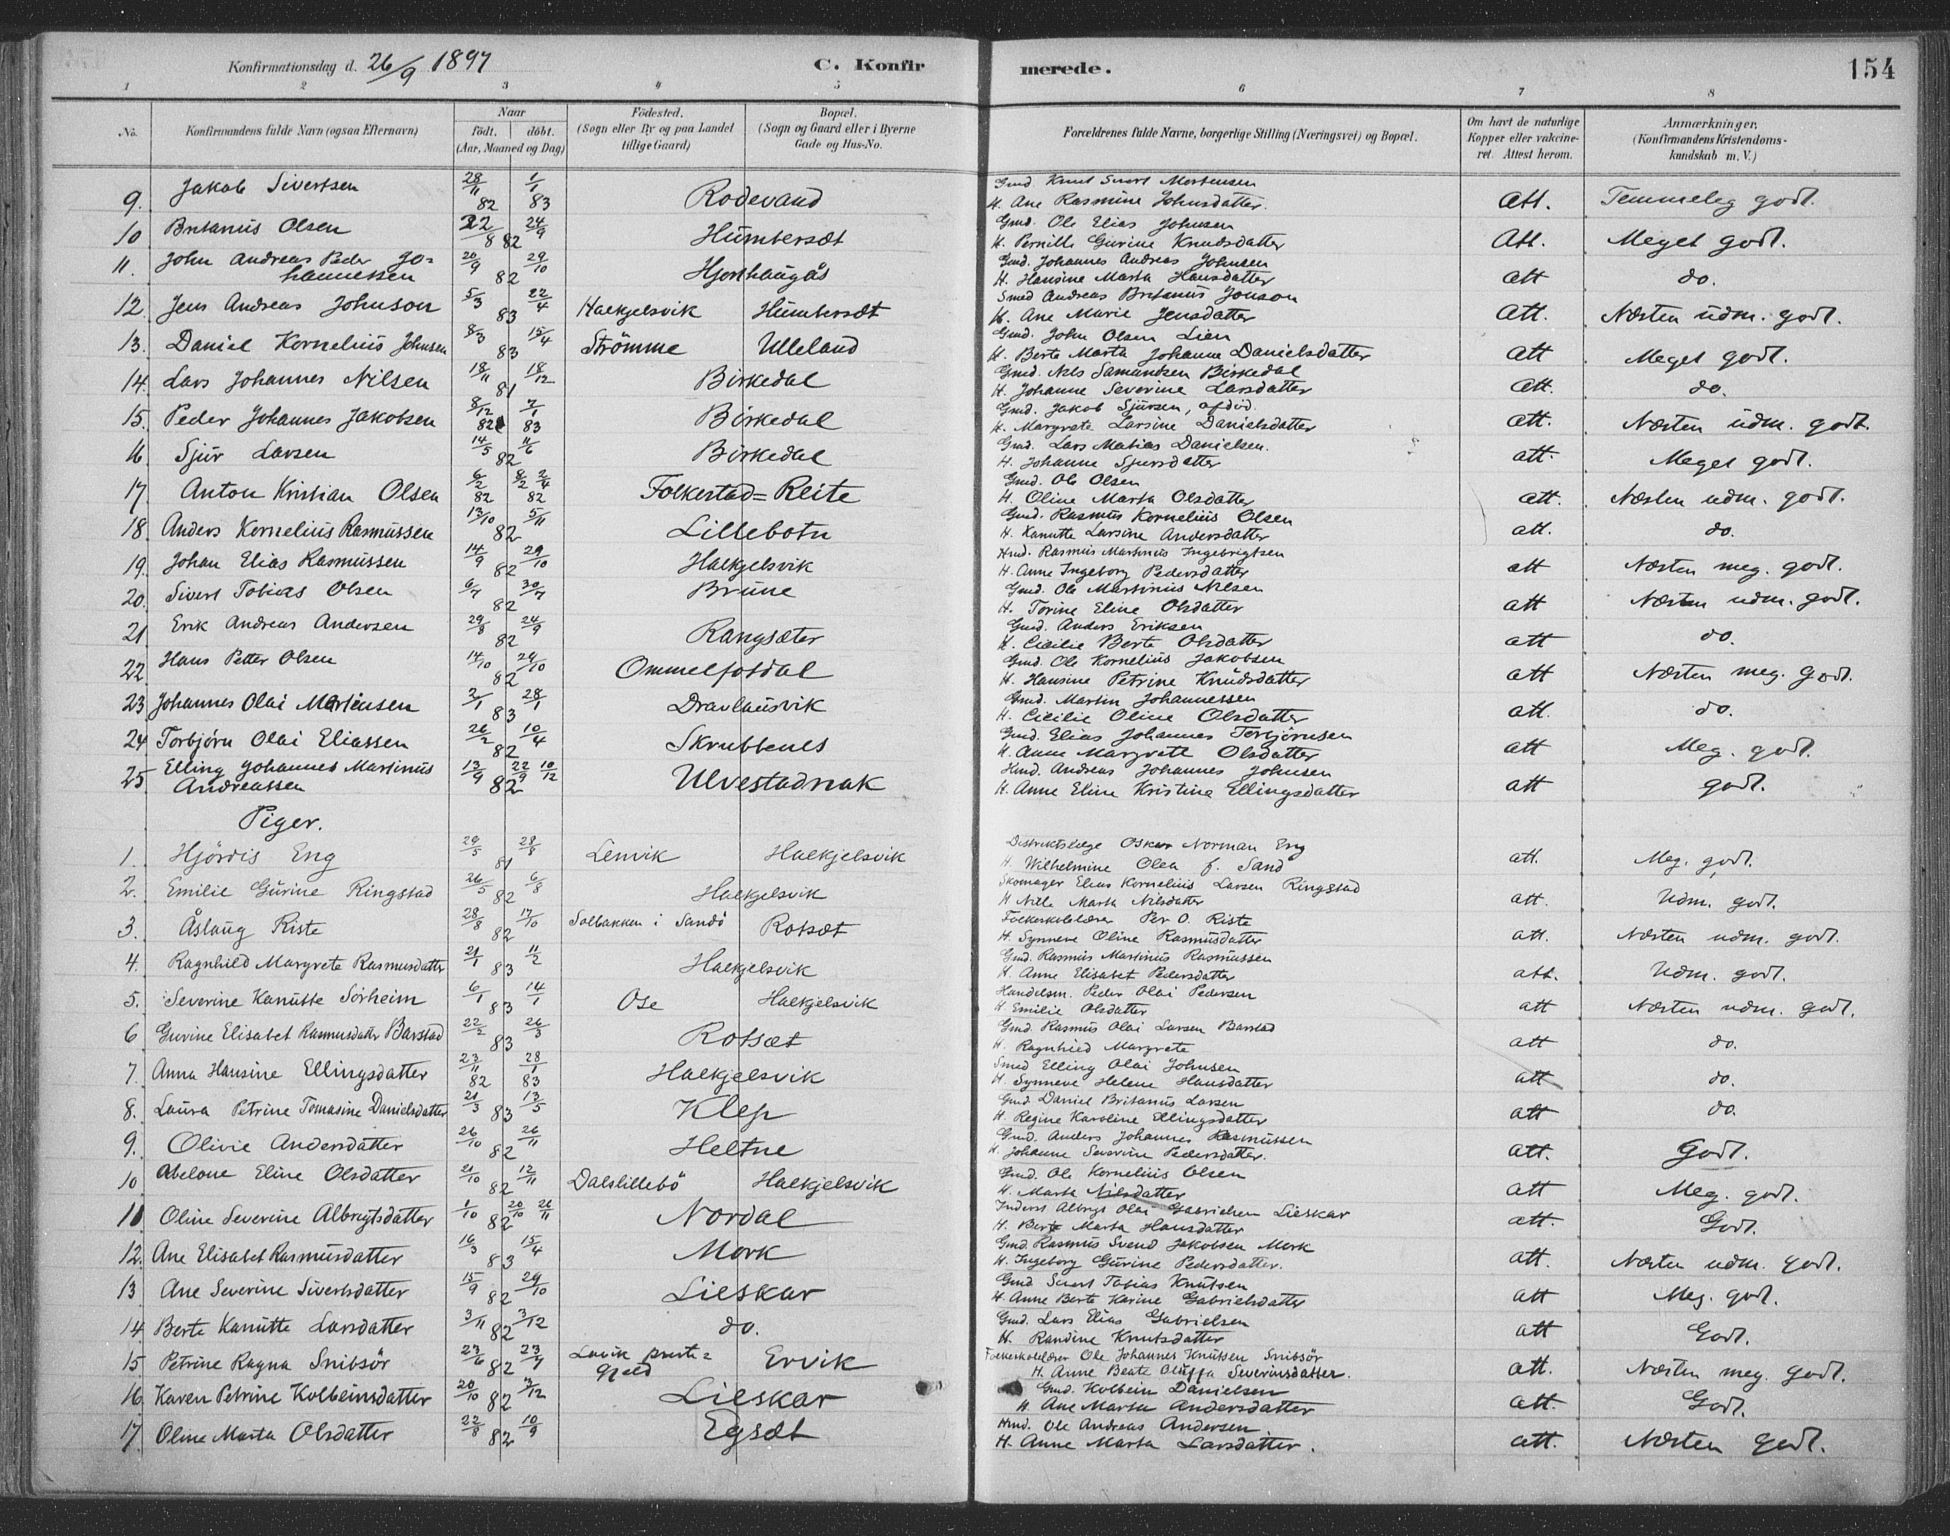 Konfirmationsdag d. 26/9 1897 C. Konfirmerede. 154
1 2 3 4 5 6 7 8
No. Konfirmandens fulde Navn (ogsaa Efternavn) Naar födt. döbt. (Aar, Maaned og Dag) Födested. (Sogn eller By og paa Landet tillige Gaard) Bopæl. (Sogn og Gaard eller i Byerne Gade og Hus-No. Forældrenes fulde Navne, borgerlige Stilling (Næringsvei) og Bopæl. Om havt de naturlige Kopper eller vakcineret. Attest herom. Anmærkninger, (Konfirmandens Kristendomskundskab m. V.)
9. Jakob Sivertsen 28/11 82 1/1 83 Rodevand Gmd Knut Sivert Mortensen H. Ane Rasmine Johnsdatter. Att. Temmeleg godt.
10 Britanus Olsen 22/8 82 24/9 Humbersæt Gmd. Ole Elias Johnsen H. Pernille Gurine Knudsdatter Att. Meget godt.
11. John Andreas Peder Johannessen 20/9 82 29/10 Hjorthaugås Gmd. Johannes Andreas Johnsen H. Hansine Marta Hansdatter att do.
12. Jens Andreas Johnson 5/3 83 22/4 Halkjelsvik Humbersæt Smed Andreas Britanus Jonson H. Ane Marie Jensdatter att. Næsten udm. godt.
13. Daniel Kornelius Johnsen 8/3 83 15/4 Strömme Ulleland Gmd. John Olsen Lien H. Berte Marta Johanne Danielsdatter att Meget godt.
14. Lars Johannes Nilsen 18/11 81 18/12 Birkedal Gmd. Nils Samundsen Birkedal H. Johanne Severine Larsdatter att. do.
15. Peder Johannes Jakobsen 8/12 82 7/1 83 Birkedal Gmd. Jakob Sjursen, afdöd. H. Margrete Larsine Danielsdatter att. Næsten udm. godt.
16 Sjur Larsen 14/5 82 11/6 Birkedal Gmd. Lars Matias Danielsen. H. Johanne Sjursdatter att. Meget godt.
17 Anton Kristian Olsen 6/2 82 8/2 2/4 82 Folkestad=Reite Gmd. Ole Olsen H. Oline Marta Olsdatter att. Næsten udm. godt.
18 Anders Kornelius Rasmussen 13/10 82 5/11 Lillebotn Gmd. Rasmus Kornelius Olsen H. Kanutte Larsine Andersdatter att. do.
19. Johan Elias Rasmussen 14/9 82 29/10 Halkjelsvik Hmd. Rasmus Martinus Ingebrigtsen H. Anne Ingeborg Pedersdatter att Næsten meg. godt.
20. Sivert Tobias Olsen 6/7 82 30/7 Brune Gmd. Ole Martinius Nilsen H. Torine Eline Olsdatter att Næsten udm. godt.
21 Erik Andreas Andersen 29/8 82 24/9 Rangsæter Gmd. Anders Eriksen H. Cicilie Berte Olsdatter att do.
22. Hans Petter Olsen 14/10 82 29/10 Ommelfotdal Gmd. Ole Kornelius Jakobsen H. Hansine Petrine Knudsdatter att Næsten meg. godt.
23 Johannes Olai Martinsen 2/1 83 28/1 Dravlausvik Gmd. Martin Johannessen H. Cicilie Oline Olsdatter att. do.
24 Torbjörn Olai Eliassen 26/2 82 10/4 Skrubbenes Gmd. Elias Johannes Torbjörnsen H. Anne Margrete Olsdatter att Meg. godt.
25 Elling Johannes Martinus Andreassen 13/9 82 22/9 10/12 Ulvestadnak Hmd. Andreas Johannes Johnsen H. Anne Eline Kristine Ellingsdatter att godt.
Piger.
1. Hjördis Eng 29/5 81 28/8 Lenvik Halkjelsvik Distriktslæge Oskar Norman Eng H. Wilhelmine Olea f. Sand att. Meg. godt.
2. Emilie Gurine Ringstad 26/5 82 6/8 Halkjelsvik Skomager Elias Kornelius Larsen Ringstad H Nille Marta Nilsdatter att. Udm. godt.
3. Åslaug Riste 28/8 82 17/10 Solbakken i Sandö Rotsæt Folkeskolelærer Per O. Riste H. Synneve Oline Rasmusdatter att. Næsten udm. godt.
4. Ragnhild Margrete Rasmusdatter 21/1 83 11/2 Halkjelsvik Gmd. Rasmus Martinus Rasmussen H. Anne Elisabet Pedersdatter att. Udm. godt.
5. Severine Kanutte Sorheim 6/1 83 14/1 Ose Halkjelsvik Handelsm. Peder Olai Pedersen H Emilie Olsdatter att Næsten udm. godt.
6 Gurine Elisabet Rasmusdatter Barstad 22/2 83 26/3 Rotsæt Gmd. Rasmus Olai Larsen Barstad H. Ragnhild Margrete att do.
7. Anna Hansine Ellingsdatter 23/11 82 28/1 83 Halkjelsvik Smed Elling Olai Johnsen H. Synneve Helene Hansdatter att do.
8. Laura Petrine Tomasine Danielsdatter 21/3 83 13/5 Klep Gmd Daniel Britanus Larsen H. Regine Karoline Ellingsdatter att do.
9. Olivie Andersdatter 26/10 82 26/11 Heltne Gmd. Anders Johannes Rasmussen H. Johanne Severine Pedersdatter. att. Godt.
10 Abelone Eline Olsdatter 21/10 82 12/11 Dalslillebö Halkjelsvik Gmd. Ole Kornelius Olsen H. Marta Nilsdatter att Meg. godt.
11 Oline Severine Albrigtsdatter 1/10 82 20/10 26/11 Nordal Inderst Albrigt Olai Gabrielsen Lieskar H. Berte Marta Hansdatter att. Godt.
12. Ane Elisabet Rasmusdatter 16/3 83 15/4 Mork Gmd Rasmus Svend Jakobsen Mork H. Ingeborg Gurine Pedersdatter. att. Næsten udm. godt.
13 Ane Severine Sivertsdatter 15/9 82 29/10 Lieskar Gmd Sivert Tobias Knutsen H. Anne Berte Karine Gabrielsdatter att Meg. godt.
14 Berte Kanutte Larsdatter 3/11 82 3/12 do. Gmd. Lars Elias Gabrielsen H. Randine Knutsdatter att Godt.
15 Petrine Ragna Snibsör 23/6 82 23/7 Lavik prestegjeld Ervik Folkeskolelærer Ole Johannes Knutsen Snibsör H. Anne Beate Oluffa Severinsdatter. att. Næsten meg. godt.
16 Karen Petrine Kolbeinsdatter 20/10 82 3/12 Lieskar Gmd. Kolbein Danielsen H Ane Marta Andersdatter att. Godt.
17 Oline Marta Olsdatter 22/8 82 10/9 Egsæt Hmd. Ole Andreas Andersen H. Anne Marta Larsdatter. att. Næsten godt.